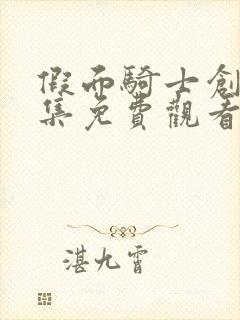 假而騎士創
集免費觀看
湛九霄